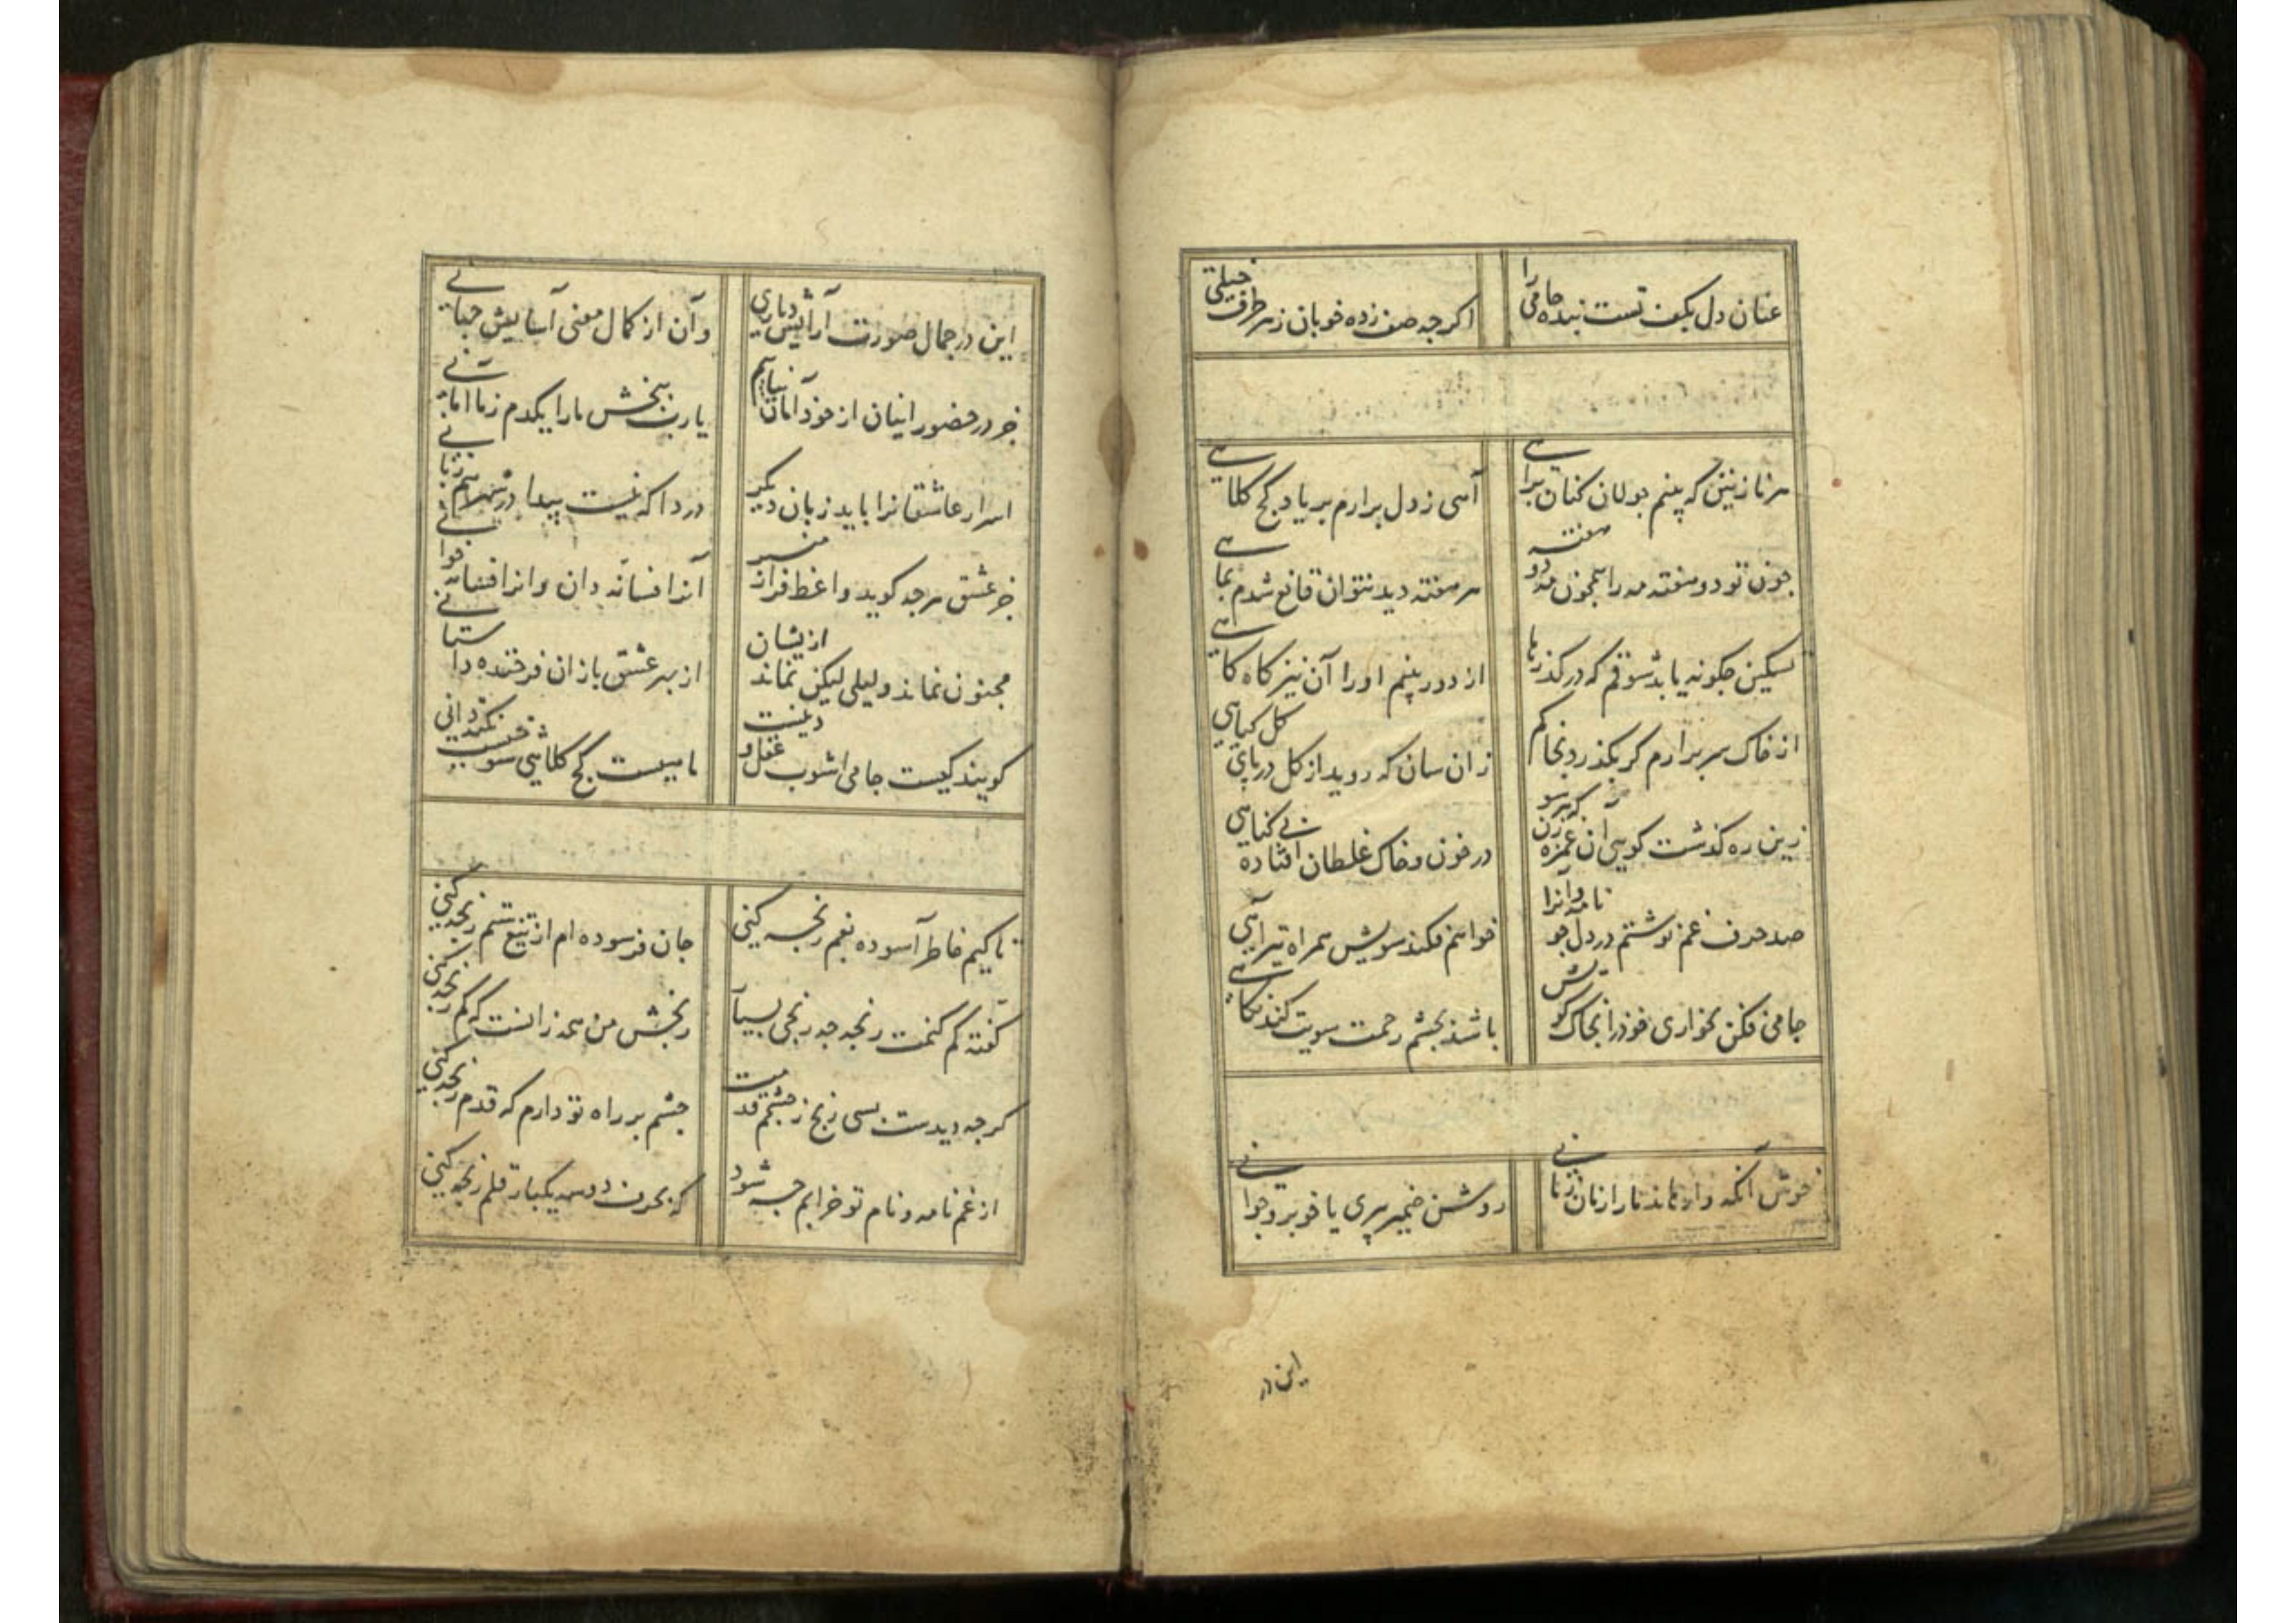 عنان دل بکف تست بنده جامی را
اکرچه صف زده خوبان ز هر طرف خیلی
هر نازنین که بینم جولان کنان براهی
آهی ز دل برارم بر یاد کج کلاهی
چون تو دو هفته مه را همچون مه دو هفته
هر هفته دید نتوان قانع شدم بماهی
تسکین چکونه یابد شوقم که در کذرها
از دور بینم او را آن نیز کاه کاهی
از خاک سر برارم کر بکذرد بخاکم
زان سان که روید از کل در پای کل کیاهی
زین ره کذشت کویی آن غمزه زن که هر سو
در خون و خاک غلطان افتاده بی کناهی
صد حرف غم نوشتم در دل چو نامه وانرا
خواهم فکند سویش همراه تیر آهی
جامی فکن بخواری خود را بخاک کویش
باشد بچشم رحمت سویت کند نکاهی
خوش آنکه وارهاند ما را ز ما زمانی
روشن ضمیر پیری یا خوبرو جوانی
این در
این در جمال صورت آرایش دیاری
وان از کمال معنی آسایش جهانی
جز در حضور اینان از خود امان نیابیم
یارب ببخش ما را یکدم ز ما امانی
اسرار عاشقانرا باید زبان دیکر
دردا که نیست پیدا در شهر هم زبانی
جز عشق هرچه کوید واعظ فراز منبر
آنرا فسانه دان و انرا فسانه خوانی
مجنون نماند و لیلی لیکن نماند ازیشان
از بهر عشق بازان فرخنده داستانی
کویند کیست جامی اشوب عقل و دینت
ما هیست کج کلاهی شوخیست نکته دانی
تا کیم خاطر آسوده بغم رنجه کنی
جان فرسوده ام از تیغ ستم رنجه کنی
کفته کم کنمت رنجه چه رنجی بسیار
رنجش من همه زانست که کم رنجه کنی
کرچه دیدست بسی رنج ز چشمم قدمت
چشم بر راه تو دارم که قدم رنجه کنی
از غم نامه و نام تو خرابم چه شود
که بحرف دوسه یکبار قلم رنجه کنی